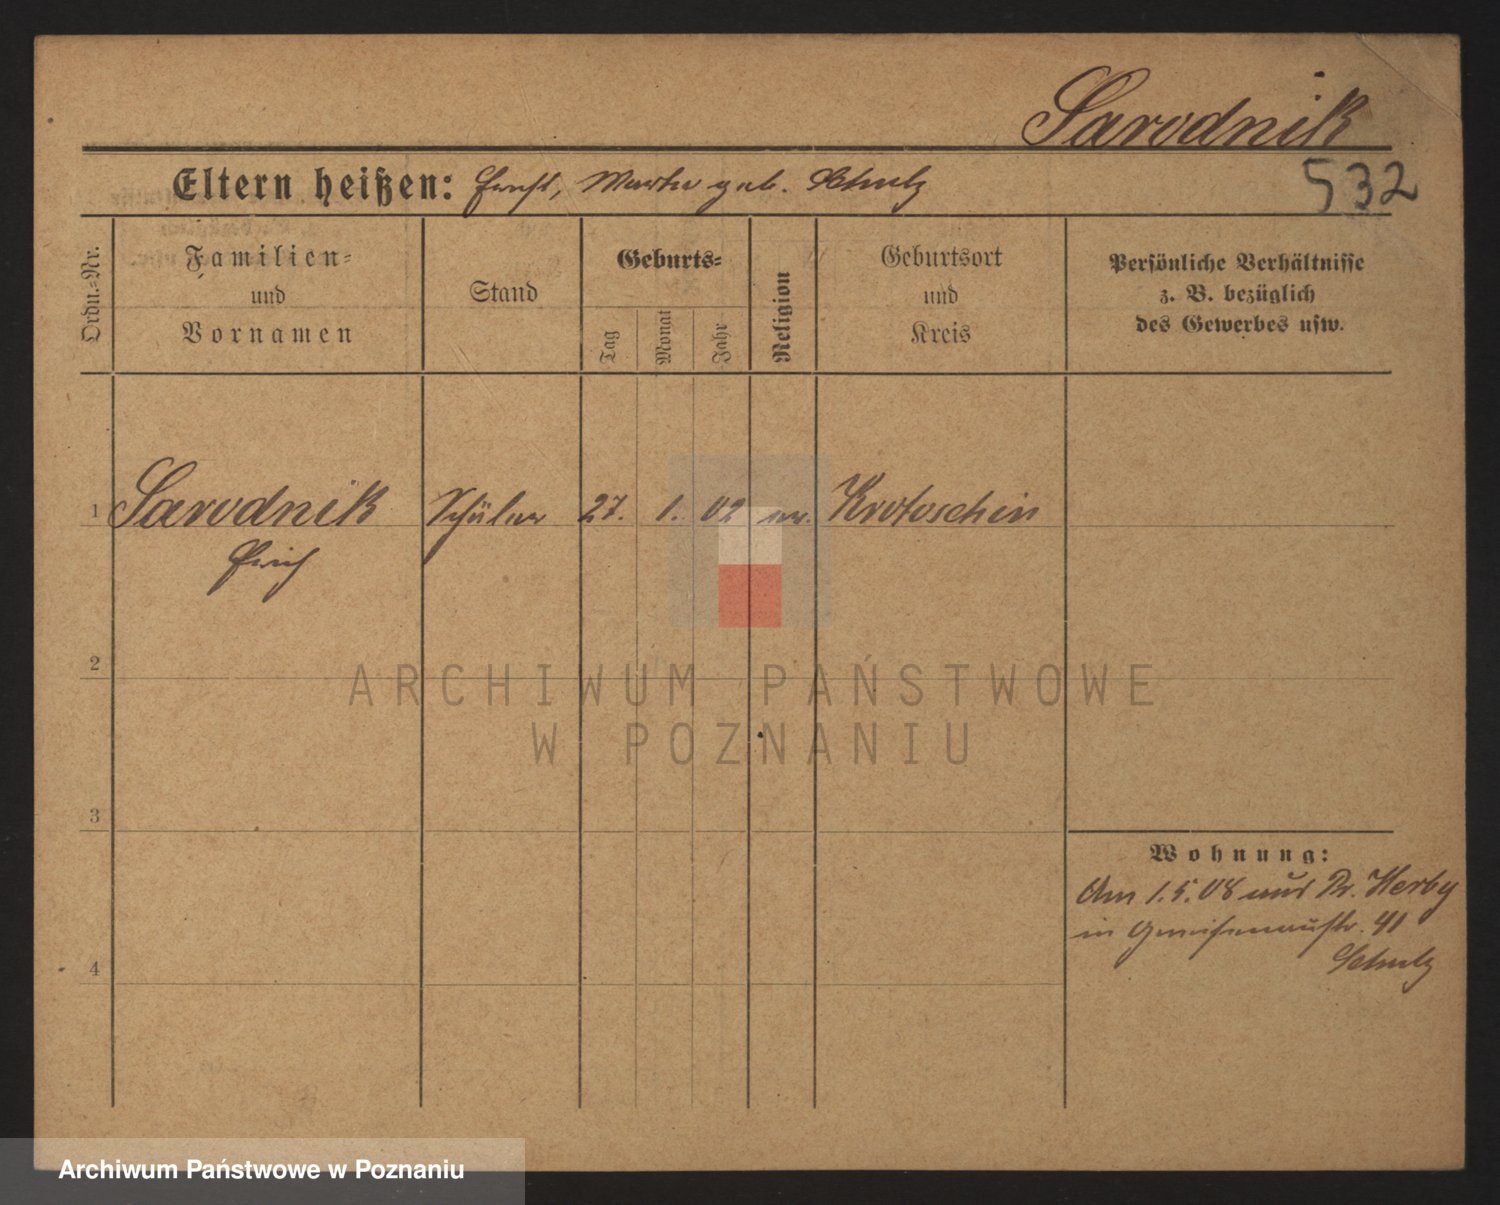 Sarodnik
532
Eltern heißen: Ernst, Martha geb. Schulz
Ordn.=Nr.
Familien=
und
Vornamen
Stand
Geburts=
Tag
Monat
Jahr
Religion
Geburtsort
und
Kreis
Persönliche Verhältnisse
z. B. bezüglich
des Gewerbes usw.
1 Sarodnik Schüler 27. 1. 02 ev. Krotoschin
Erich
2
ARCHIWUM PAŃSTWOWE
W POZNANIU
3
Wohnung:
Am 1.5.08 aus Kr.
in Gneisenaustr. 41
Schulz
4
Archiwum Państwowe w Poznaniu